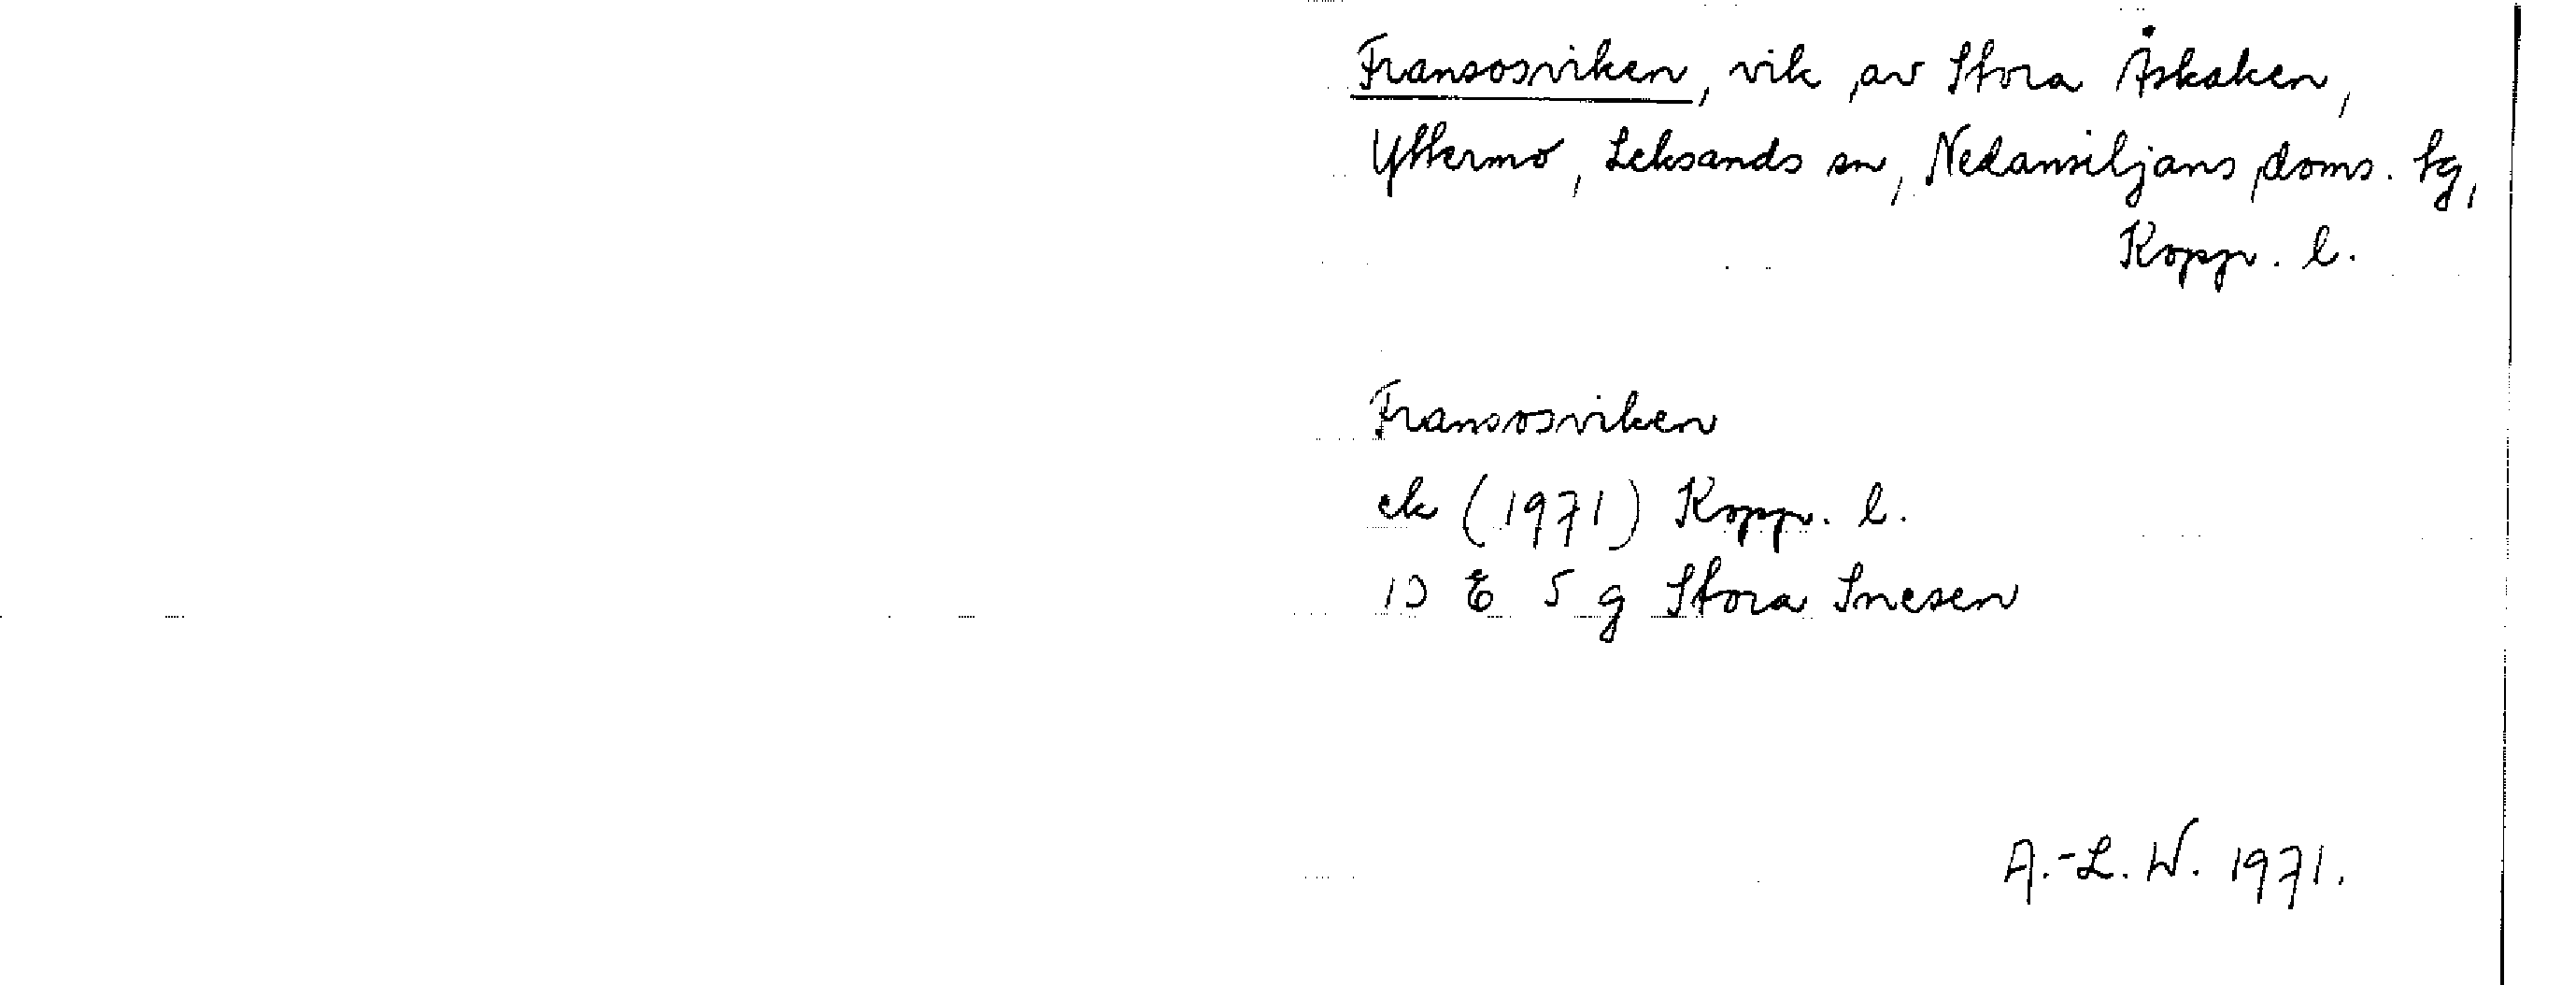 Fransosviken, vik av Stora Åskaken,
Yttermo, Leksands sn, Nedansiljans doms. tg,
Kopp. l.
Fransosviken
ek (1971) Kopp. l.
13 E 5 g Stora Snesen
A.-L. W. 1971.